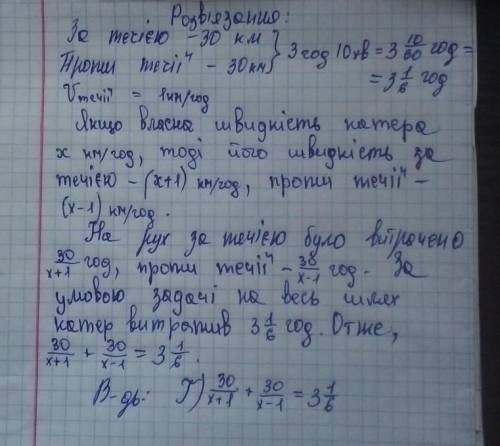 Розв'язання:
За течією – 30 км } 3 год 10 хв = 3 10/60 год =
Проти течії – 30 км } = 3 1/6 год
Vтечії = 1 км/год
Якщо власна швидкість катера
x км/год, тоді його швидкість за
течією – (x+1) км/год, проти течії –
(x-1) км/год.
На рух за течією було витрачено
30/x+1 год, проти течії – 30/x-1 год. За
умовою задачі на весь шлях
катер витратив 3 1/6 год. Отже,
30/x+1 + 30/x-1 = 3 1/6.
В-дь: Г) 30/x+1 + 30/x-1 = 3 1/6